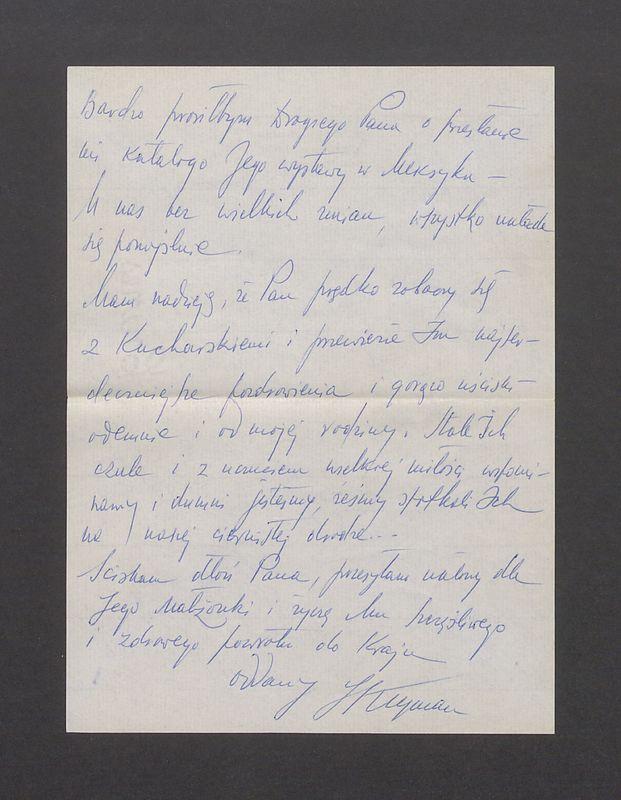 Bardzo prosiłbym Drogiego Pana o przesłanie
mi Katalogu Jego wystawy w Meksyku —
U nas bez wielkich zmian, wszystko układa
się pomyślnie.
Mam nadzieję, że Pan prędko zobaczy się
z Kucharskiemi i przewiezie Im najser-
deczniejsze pozdrowienia i gorące uściski —
odemnie i od mojej rodziny. Stale Ich
czule i z uczuciem wielkiej miłości wspomi-
namy i dumni jesteśmy, żeśmy spotkali Ich
na naszej ciernistej drodze...
Ściskam dłoń Pana, przesyłam ukłony dla
Jego Małżonki i życzę Mu szczęśliwego
i zdrowego powrotu do Kraju
oddany